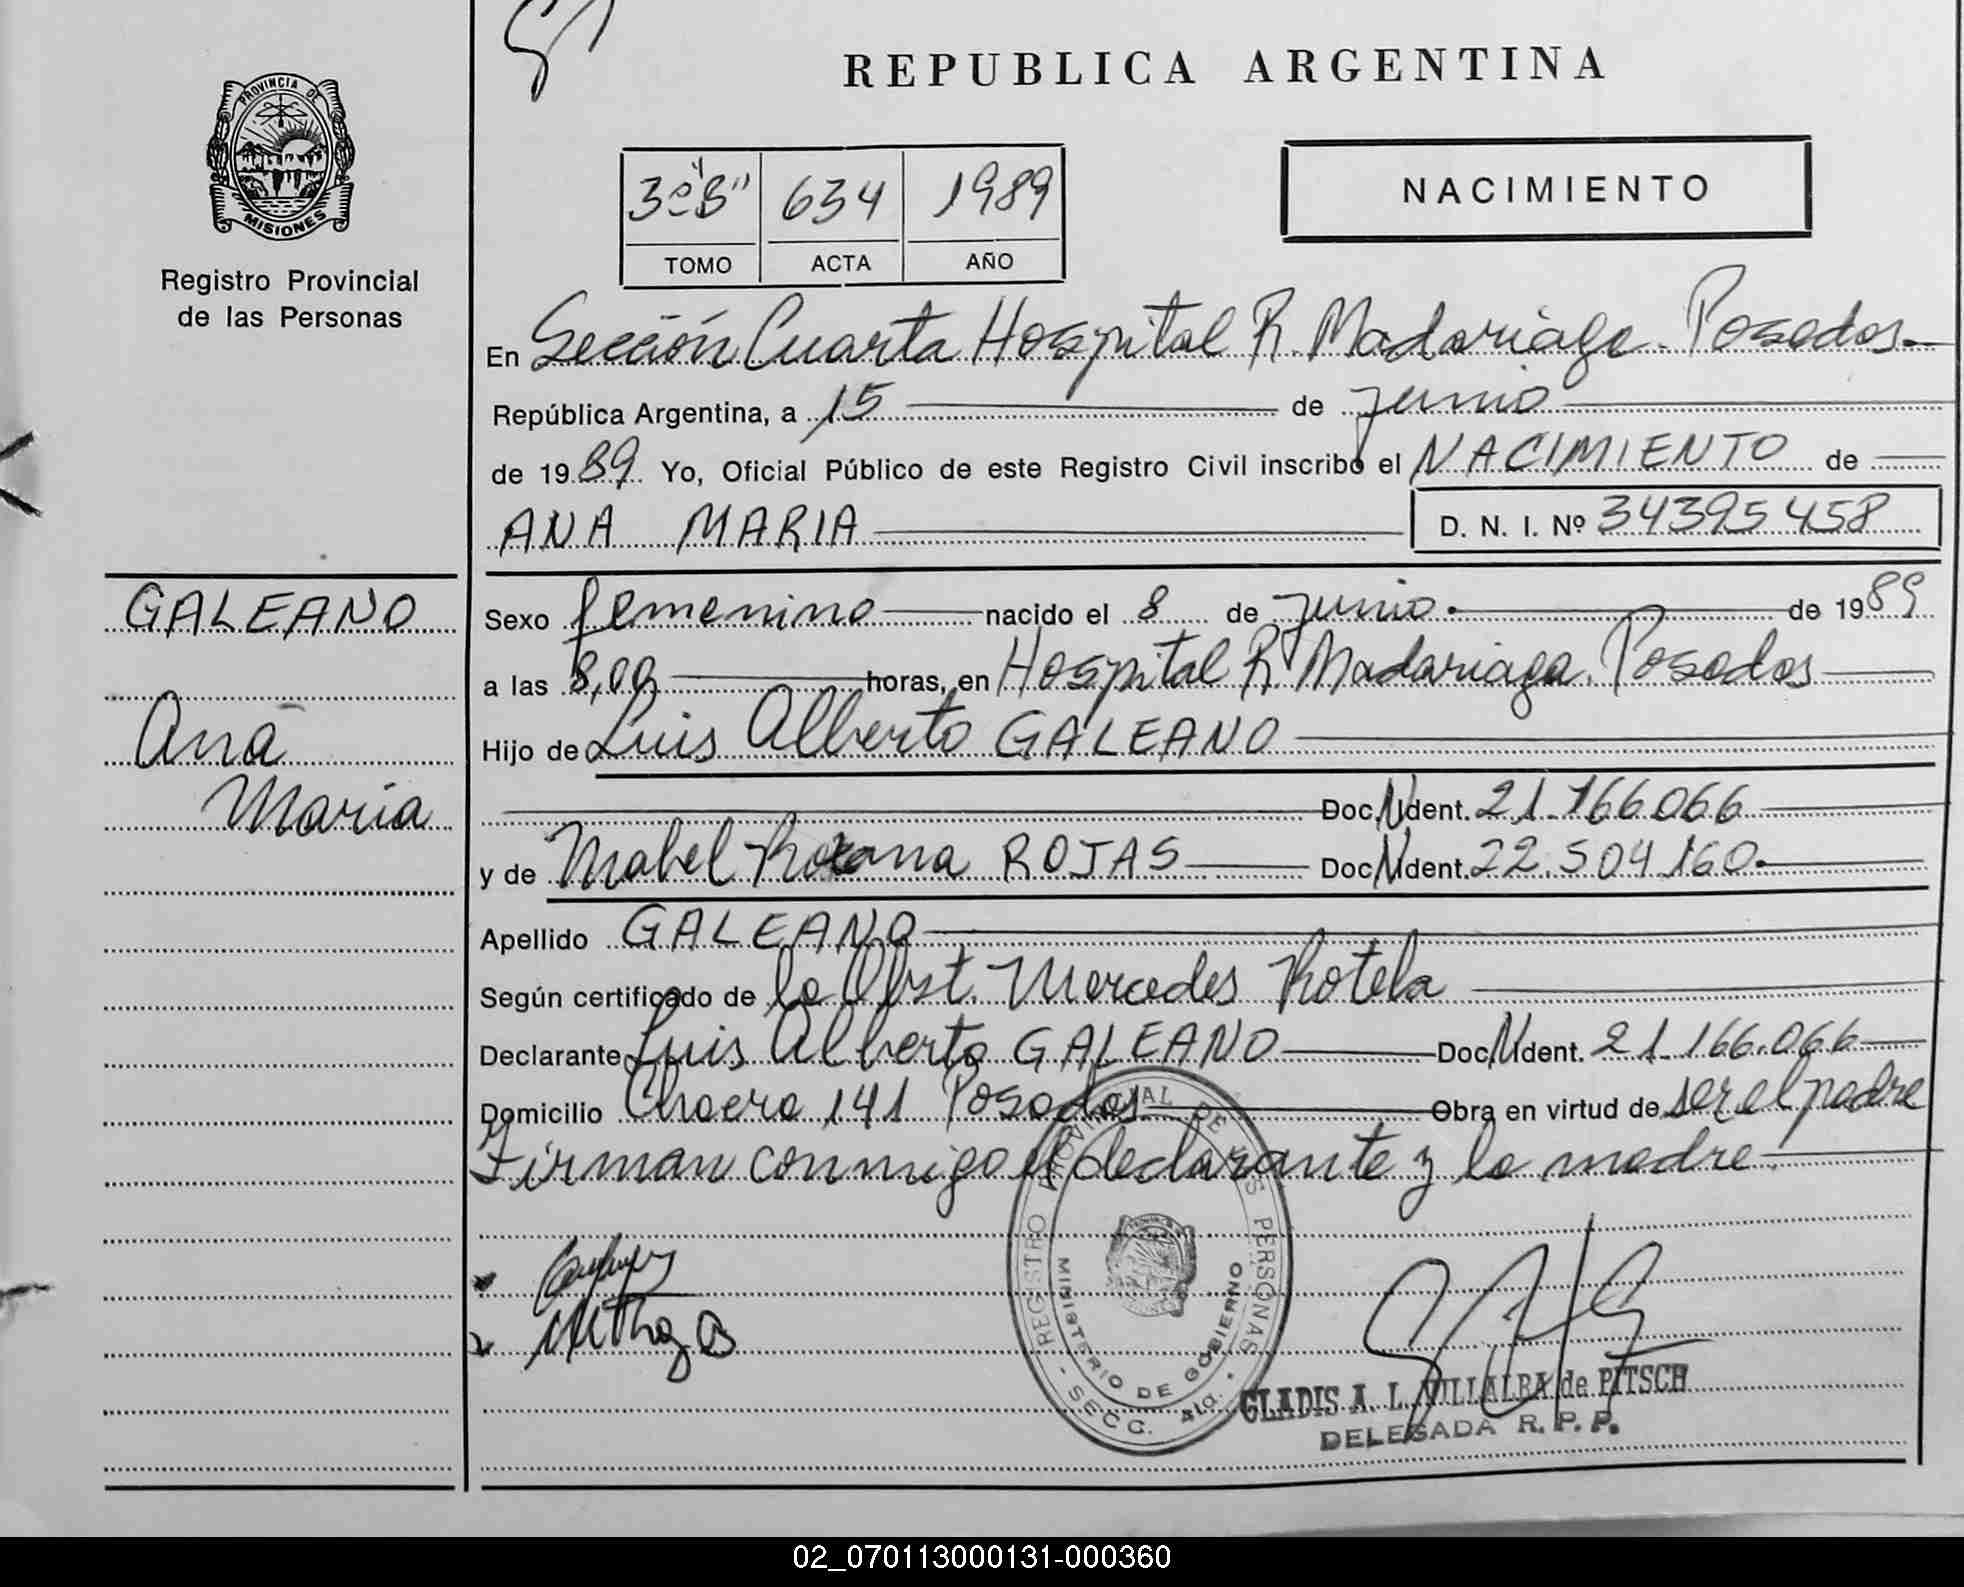 REPUBLICA ARGENTINA
PROVINCIA DE
MISIONES
Registro Provincial
de las Personas
3º "B" 634 1989
TOMO ACTA AÑO
NACIMIENTO
En Sección Cuarta Hospital R. Madariaga. Posadas.
República Argentina, a 15 de junio
de 1989. Yo, Oficial Público de este Registro Civil inscribo el NACIMIENTO de
ANA MARIA D. N. I. Nº 34395458
GALEANO
Ana
Maria
Sexo femenino nacido el 8 de junio. de 1989
a las 8,00 horas, en Hospital R. Madariaga. Posadas
Hijo de Luis Alberto GALEANO
Doc. N Ident. 21.166.066
y de Mabel Roxana ROJAS Doc. N Ident. 22.504.160.
Apellido GALEANO
Según certificado de la Obst. Mercedes Rotela
Declarante Luis Alberto GALEANO Doc. N Ident. 21.166.066
Domicilio Chacra 141 Posadas Obra en virtud de ser el padre
Firman conmigo el declarante y la madre.
REGISTRO PROVINCIAL DE LAS PERSONAS
MINISTERIO DE GOBIERNO
- SECC. 4ta. -
GLADIS A. L. VILLALBA de PITSCH
DELEGADA R. P. P.
02_070113000131-000360